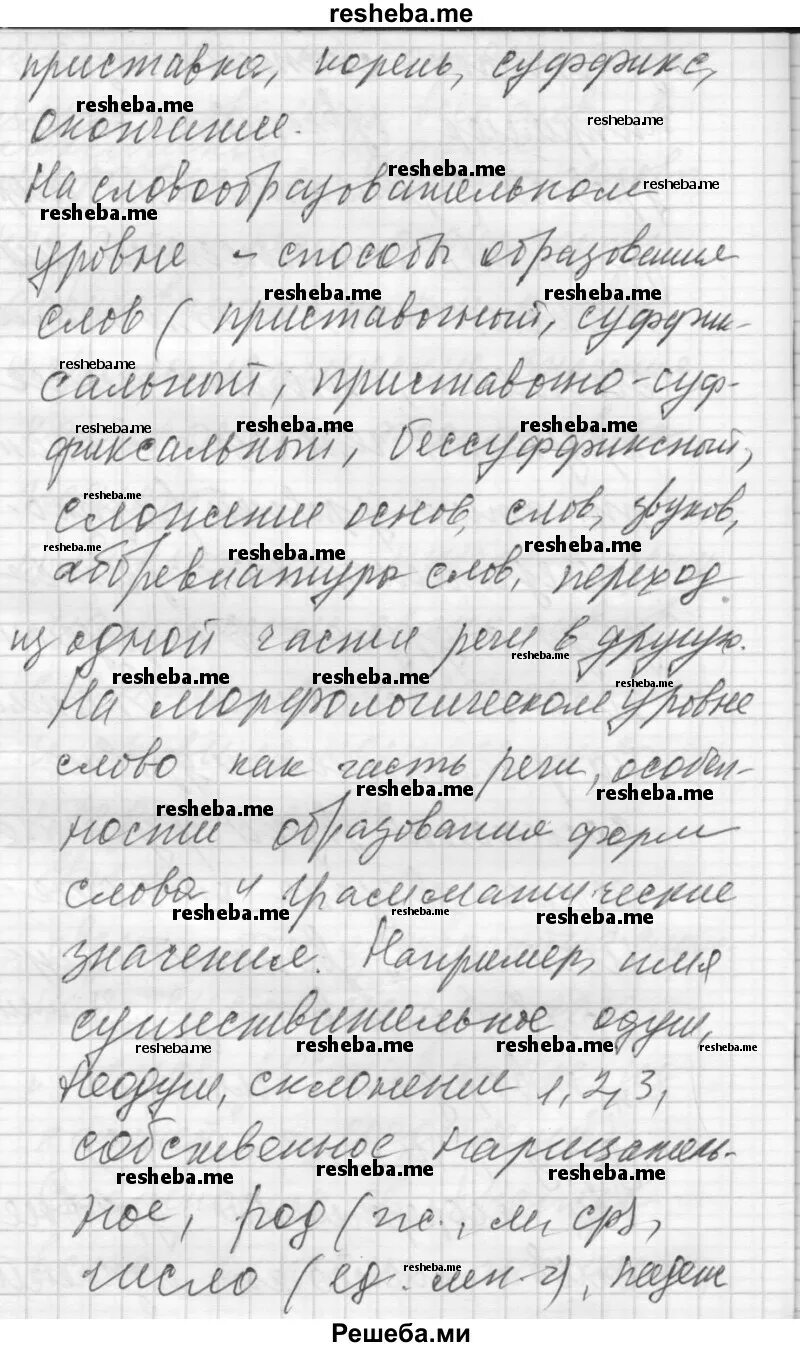 resheba.me
приставка, корень, суффикс,
resheba.me
окончание.
resheba.me
resheba.me
На словообразовательном
resheba.me
resheba.me
уровне - способы образования
resheba.me
resheba.me
слов (приставочный, суффик-
resheba.me
сальный, приставочно-суф-
resheba.me
resheba.me
resheba.me
фиксальный, бессуффиксный,
resheba.me
сложение основ, слов, звуков,
resheba.me
resheba.me
resheba.me
аббревиатуры слов, переход
из одной части речи в другую.
resheba.me
resheba.me
resheba.me
resheba.me
На морфологическом уровне
слово как часть речи, особен-
resheba.me
resheba.me
resheba.me
ности образования форм
слова и грамматические
resheba.me
resheba.me
resheba.me
значения. Например, имя
существительное одуш,
resheba.me
resheba.me
resheba.me
resheba.me
неодуш, склонение 1, 2, 3,
собственное нарицатель-
resheba.me
resheba.me
resheba.me
ное, род (ж., м, ср),
число (ед. мн-ч), падеж
resheba.me
Решеба.ми